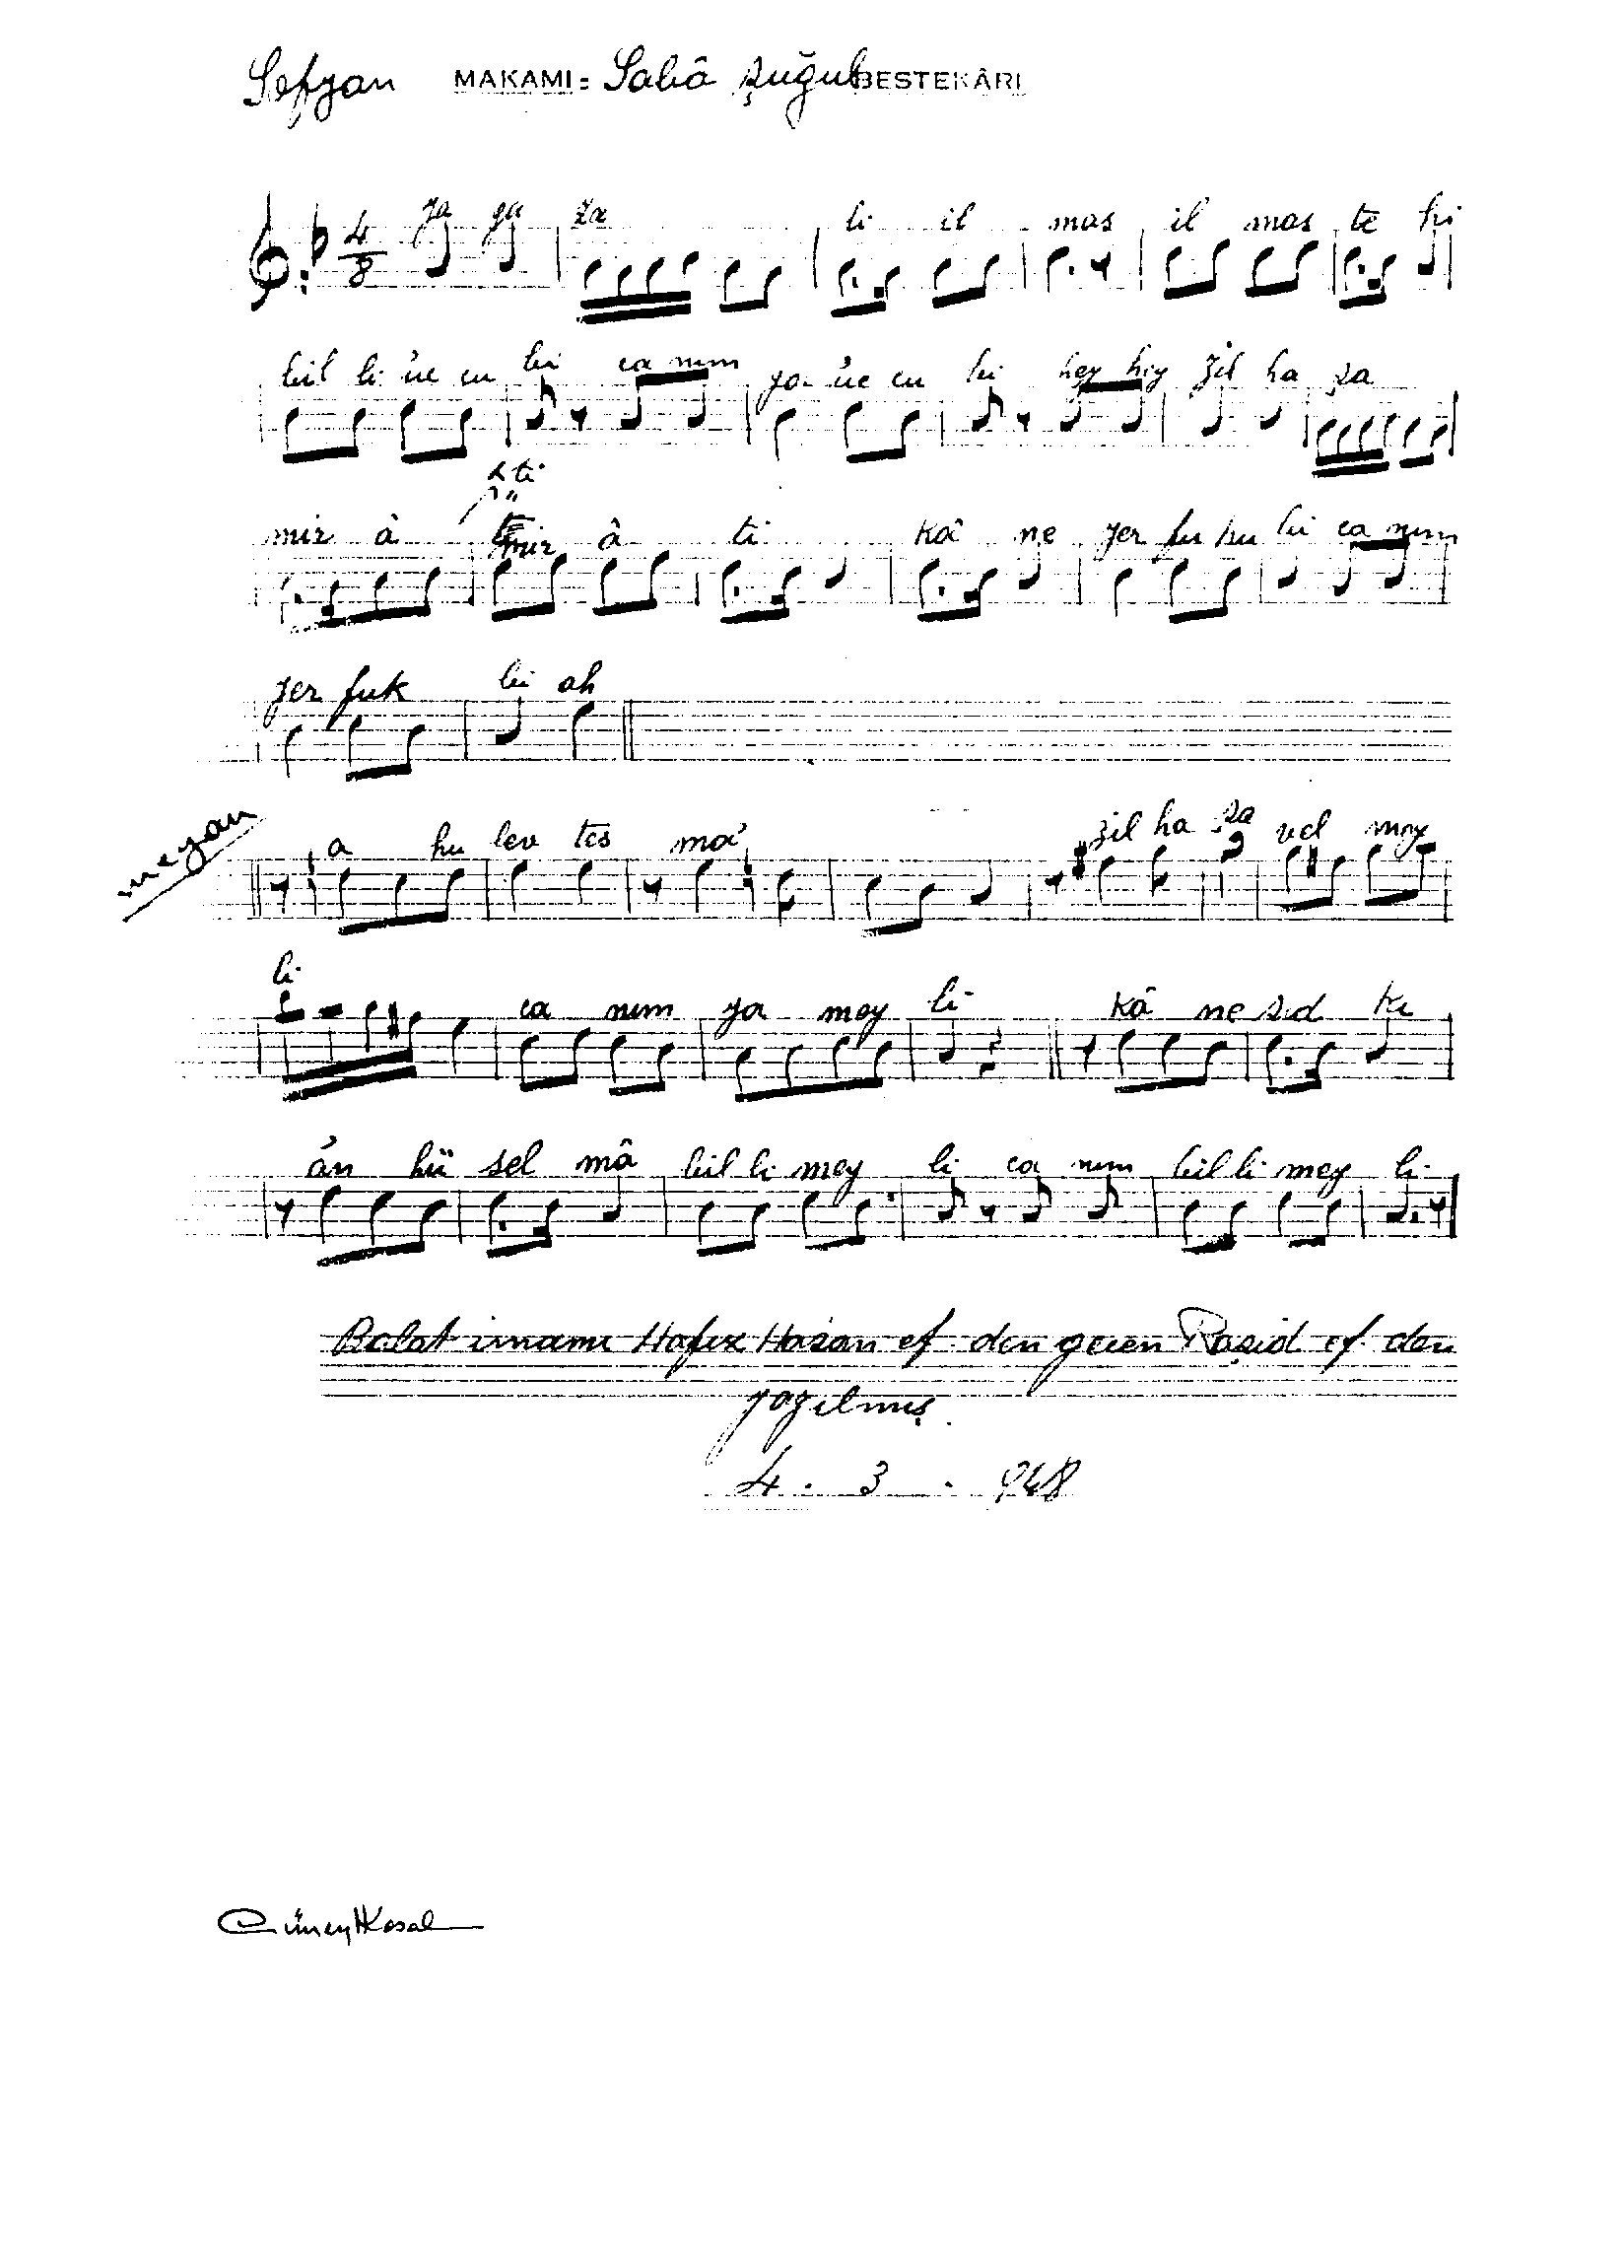 Sofyan MAKAMI: Sabâ şuğul BESTEKÂRI
4/8 ya ga za li il mas il mas te hi
bil li üc cu bi ca nım ya üc cu bi hey hey zil ha za
ti
mir â mir â ti Kâ ne yer fu hu bi ca nım
yer fuk bi ah
meyan
a hu lev tes ma zil ha za vel mey
li ca nım ya mey li kâ ne sıd kı
ân hü sel mâ bil li mey li ca nım bil li mey li
Balat imamı Hafız Hasan ef. den geçen Raşid ef. den
yazılmış.
4 . 3 . 948
Cüneyd Kosal